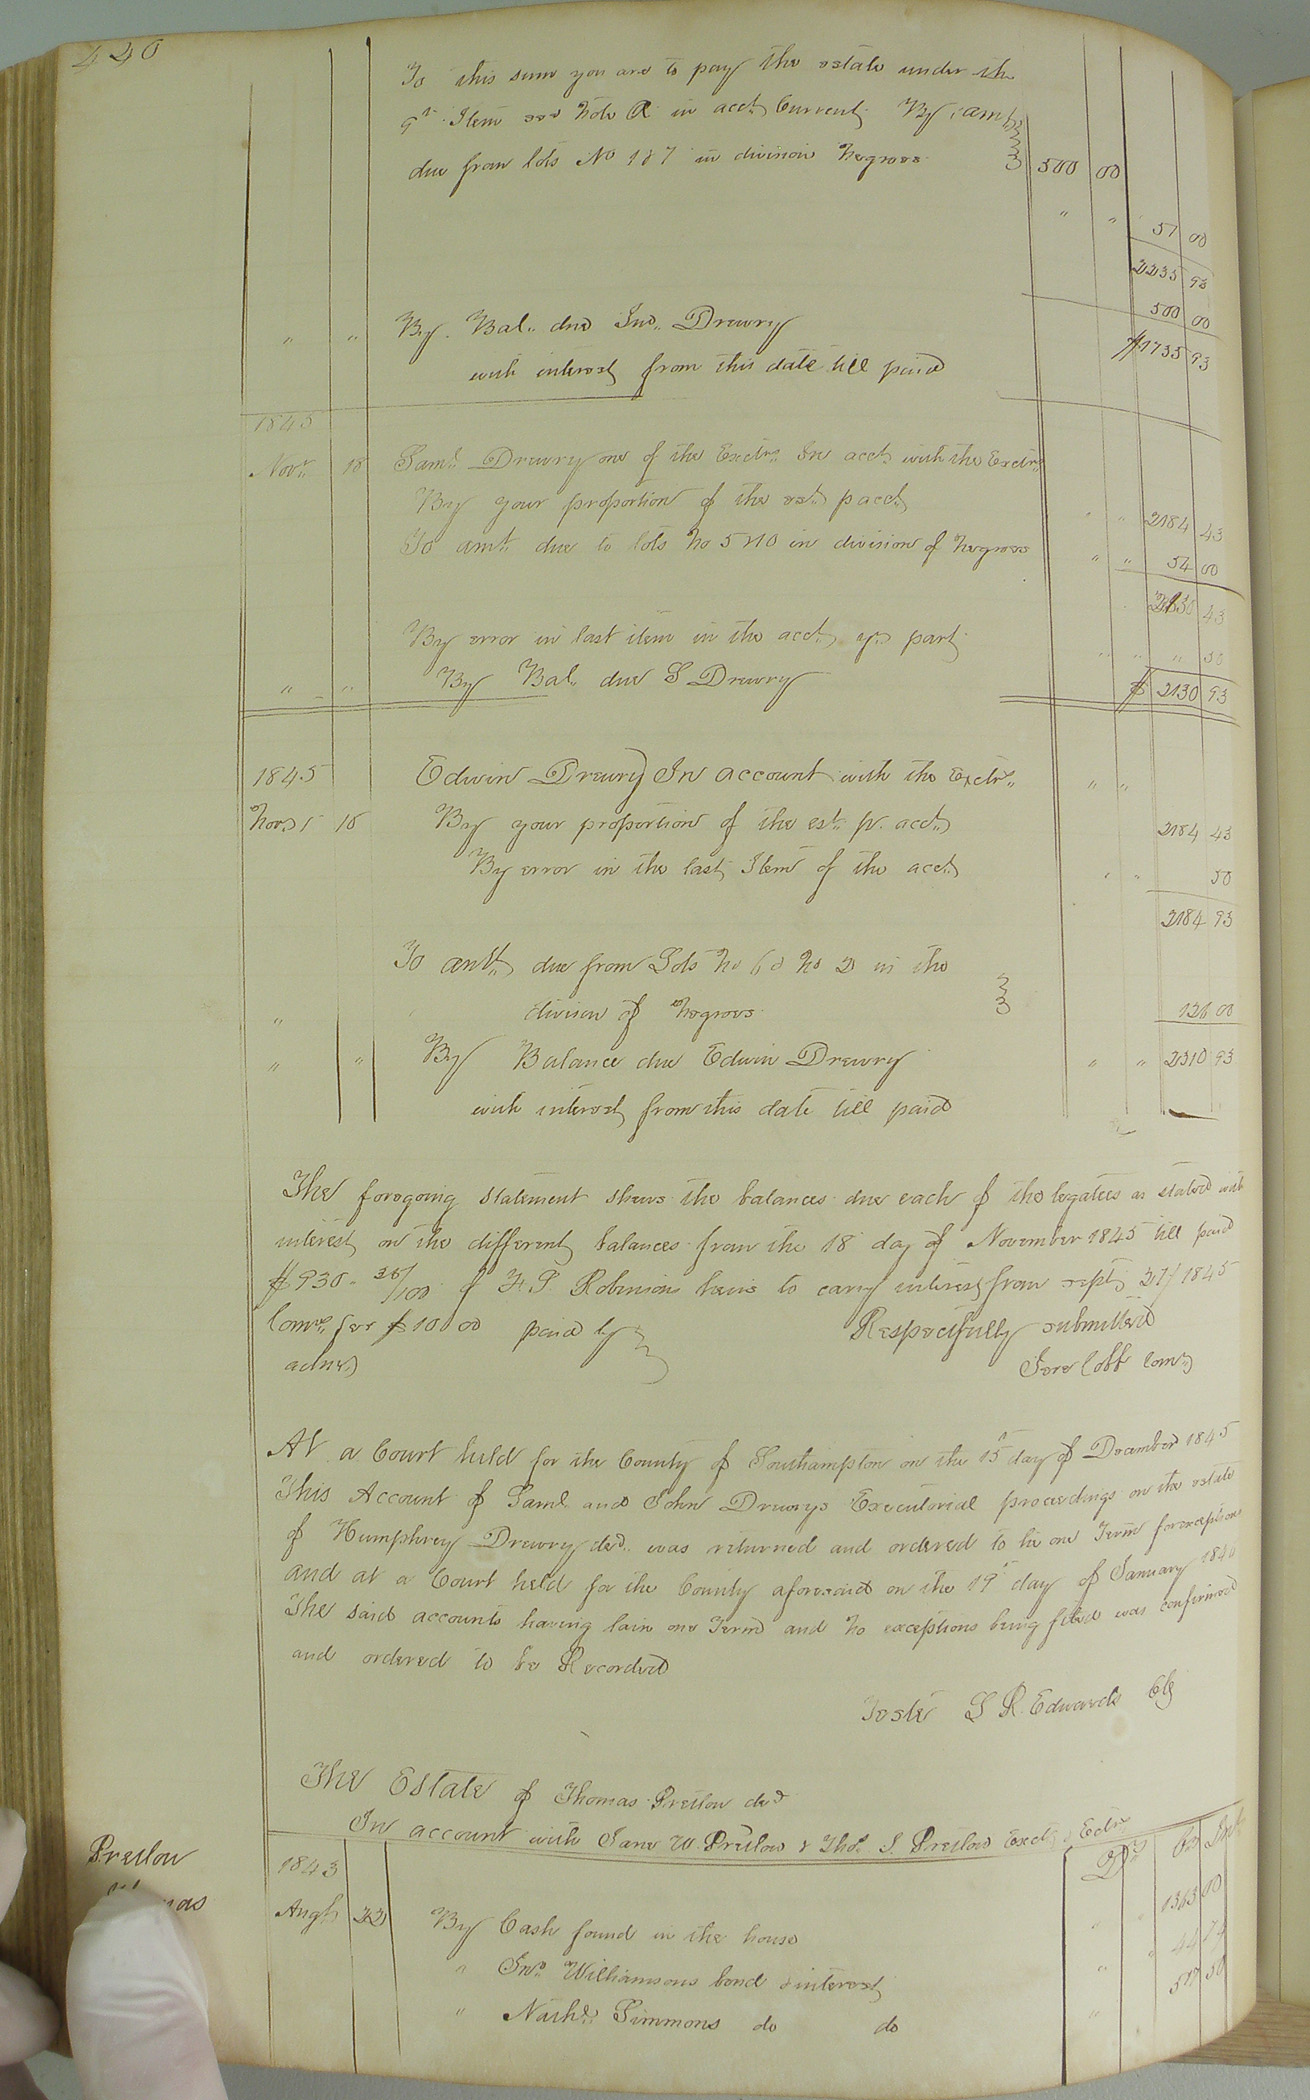 440
To this sum you are to pay the estate under the
9th Item see Note R in acct Current By amt
due from lots No 1 & 7 in division Negroes 500 00
" " 51 00
2235 93
500 00
" " By Bal.. due Jno.. Drewry $1735 93
with interest from this date till paid
1845
Novr 18 Saml Drewry one of the Exctrs In acct with the Exctrs
By your proportion of the est. p acct " " 2184 43
To amt due to lots No 5 & 10 in division of Negroes " " 54 00
2130 43
By error in last item in the acct part " " " 50
" " By Bal.. due S Drewry $ 2130 93
1845 Edwin Drewry In account with the Exctrs " "
Novr 18 By your proportion of the est. pr. acct 2184 43
By error in the last Item of the acct " " 50
2184 93
To amt due from Lots No 6 & No 2 in the
" division of Negroes 126 00
" " By Balance due Edwin Drewry " " 2310 93
with interest from this date till paid
The foregoing statement shews the balances due each of the legatees as stated with
interest on the different balances from the 18 day of November 1845 till paid
$930. 36/100 of Robinsons heirs to carry interest from sept 27/1845
Comrs fee $10 00 paid by Respectfully submitted
admr Jere Cobb Comr
At a Court held for the County of Southampton on the 15th day of December 1845
This Account of Saml and John Drewrys Executorial proceedings on the estate
of Humphrey Drewry decd.. was returned and ordered to lie one Term for exceptions
and at a Court held for the County aforesaid on the 19th day of January 1846
The said accounts having lain one Term and no exceptions being filed was confirmed
and ordered to be Recorded
Teste L R. Edwards Clk
The Estate of Thomas Pretlow decd
In account with Jane W. Pretlow & Thos. J. Pretlow Exctr & Ectrx
Pretlow
1843 Dr Cr
Augt 22 By Cash found in the house " 1363 00
" Jno. Williamsons bond & interest " 44 74
" Nathl. Simmons do do " 517 50